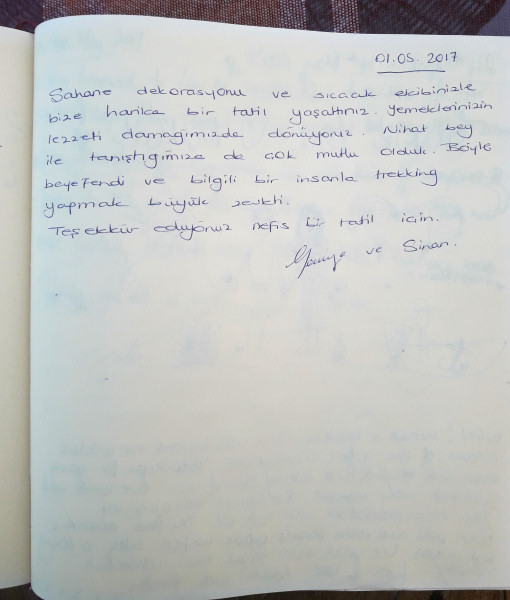 01.05.2017
Şahane dekorasyonu ve sıcacık ekibinizle
bize harika bir tatil yaşattınız. Yemeklerinizin
lezzeti damağımızda dönüyoruz. Nihat bey
ile tanıştığımıza da çok mutlu olduk. Böyle
beyefendi ve bilgili bir insanla trekking
yapmak büyük zevkti.
Teşekkür ediyoruz nefis bir tatil için.
ve Sinan.